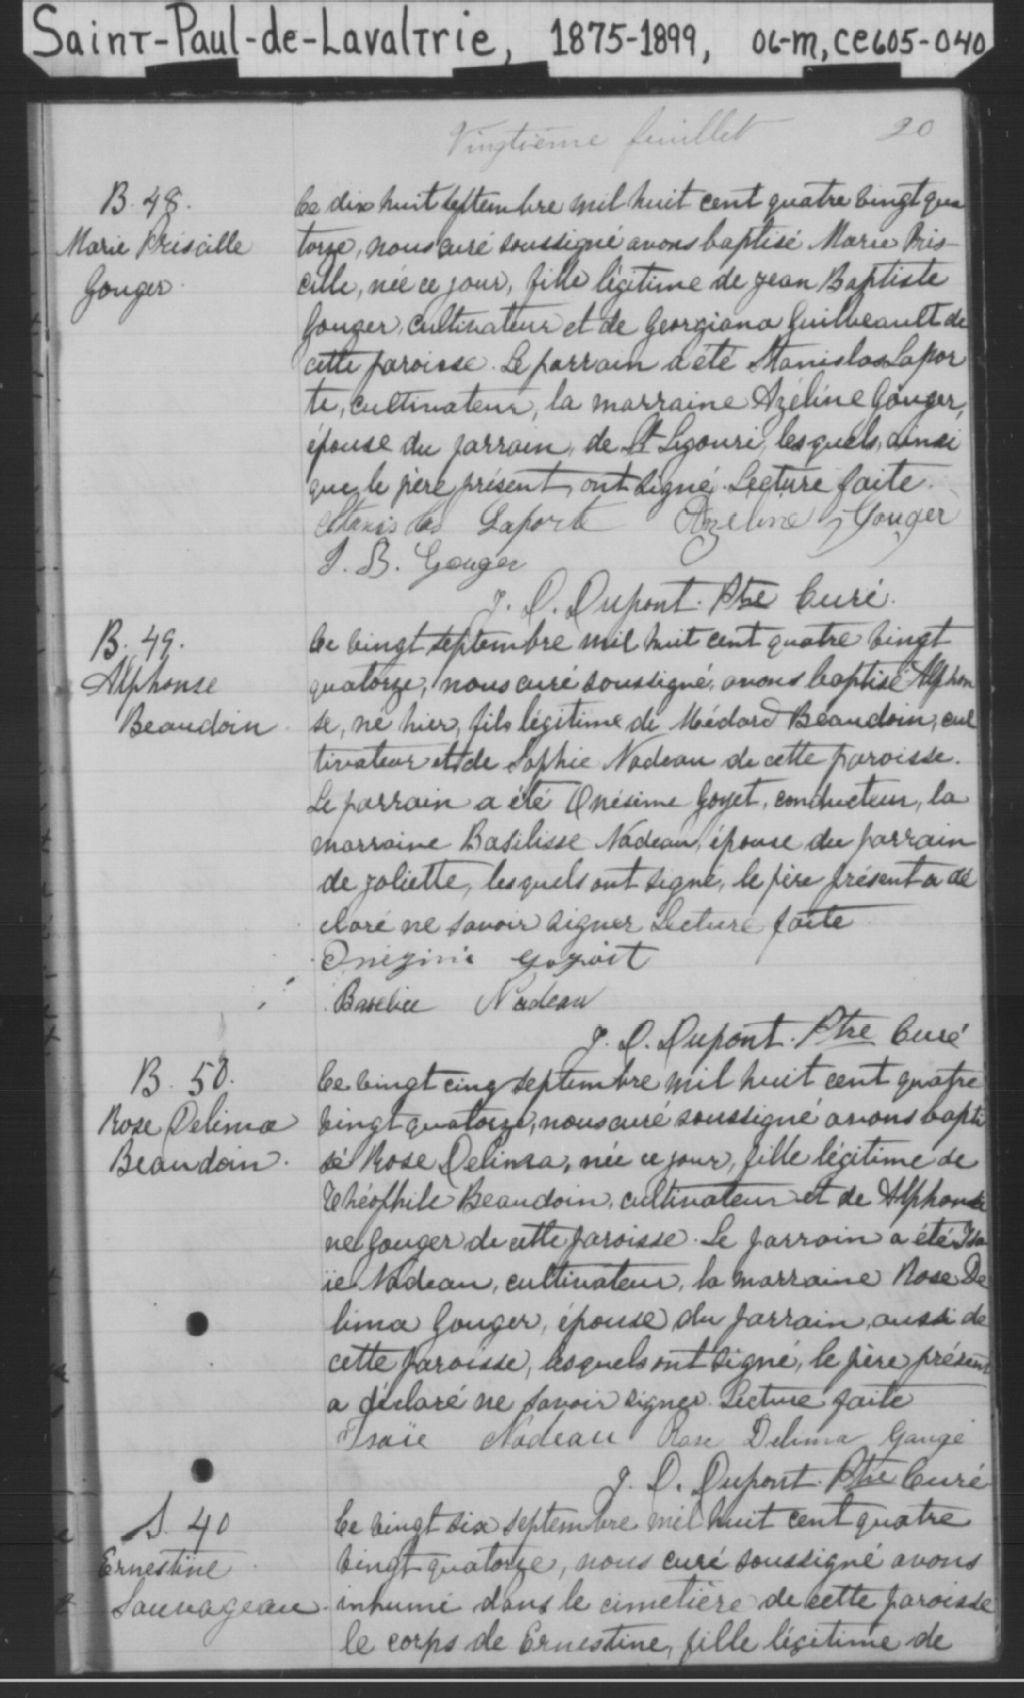 Saint-Paul-de-Lavaltrie, 1875-1899, 06-M, CE605-040
Vingtième feuillet 20
B. 48.
Marie Priscille
Gouger
Ce dix huit septembre mil huit cent quatre vingt qua
torze, nous curé soussigné avons baptisé Marie Pris-
cille, née ce jour, fille légitime de Jean Baptiste
Gouger, cultivateur et de Georgiana Guilbeault de
cette paroisse. Le parrain a été Stanislas Lapor
te, cultivateur, la marraine Azéline Gouger,
épouse du parrain, de St Ligouri, lesquels, ainsi
que le père présent, ont signé. Lecture faite.
Stanislas Laporte Azeline Gouger
J. B. Gouger
J. D. Dupont. Ptre Curé.
B. 49.
Alphonse
Beaudoin
Ce vingt septembre mil huit cent quatre vingt
quatorze, nous curé soussigné, avons baptisé Alphon
se, né hier, fils légitime de Médard Beaudoin, cul
tivateur et de Sophie Nadeau de cette paroisse.
Le parrain a été Onésime Goyet, conducteur, la
marraine Basilisse Nadeau, épouse du parrain
de Joliette, lesquels ont signé, le père présent a dé
claré ne savoir signer Lecture faite
Nadeau
J. D. Dupont. Ptre Curé
B. 50.
Rose Delima
Beaudoin.
Ce vingt cinq septembre mil huit cent quatre
vingt quatorze, nous curé soussigné avons bapti
sé Rose Delima, née ce jour, fille légitime de
Théophile Beaudoin, cultivateur et de Alphonsi
ne Gouger de cette paroisse. Le parrain a été Isa
ïe Nadeau, cultivateur, la marraine Rose De
lima Gouger, épouse du parrain, aussi de
cette paroisse, lesquels ont signé, le père présent
a déclaré ne savoir signer. Lecture faite
Isaïe Nadeau Rose Delima Gauge
J. D. Dupont. Ptre Curé
S. 40
Ernestine
Sauvageau
Ce vingt six septembre mil huit cent quatre
vingt quatorze, nous curé soussigné avons
inhumé dans le cimetière de cette paroisse
le corps de Ernestine, fille légitime de